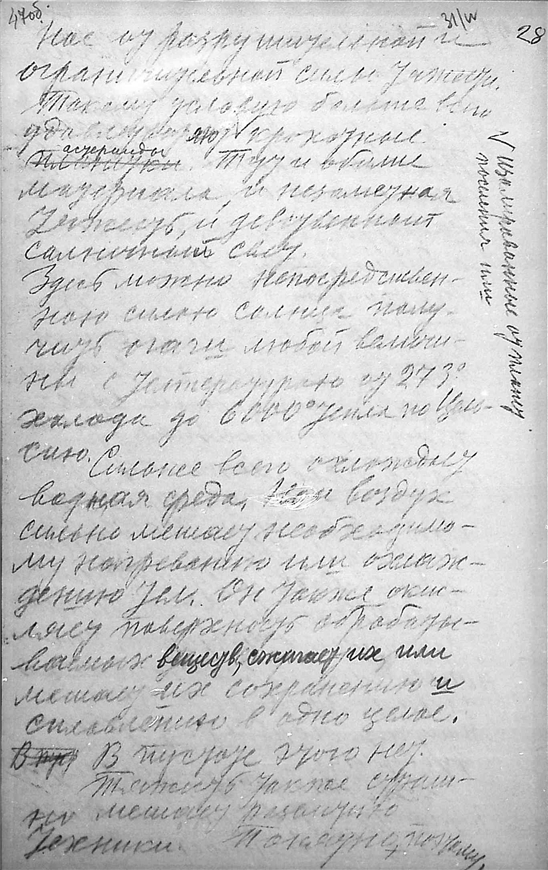 47об.
31/III
28
нас от разрушительной и
ограничительной силы тяжести.
Такому условию больше всего
удовлетворяют крохотные
астероиды
планетки. Тут и обилие
материала, и незаметная
тяжесть, и девственный
солнечный свет.
Здесь можно непосредствен-
ною силою солнца полу-
чить очаги любой величи-
ны с температурою от 273°
холода до 6000° тепла по Цель-
сию.
Сильнее всего охлаждает
водная среда. Но и воздух
сильно мешает необходимо-
му нагреванию или охлаж-
дению тел. Он также окис-
ляет поверхность обрабаты-
ваемых веществ, сожигает их или
мешает их сохранению и
сплавлению в одно целое.
В пустоте этого нет.
Тяжесть также страш-
но мешает развитию
техники. Поясню, почему.
√ Изолированные от планет
поселения или